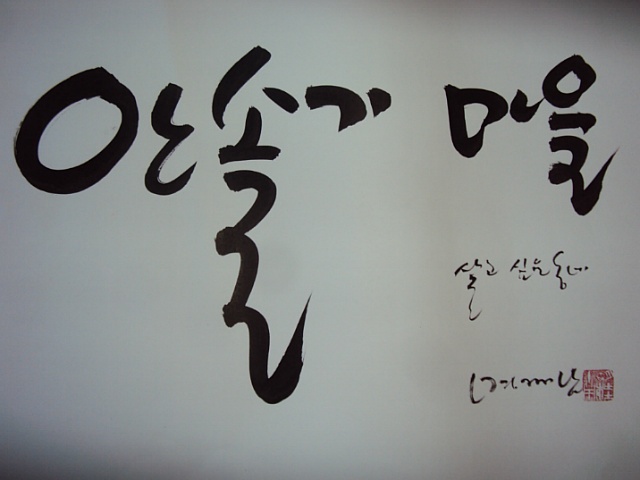 안솔기 마을
살고 싶은 동네